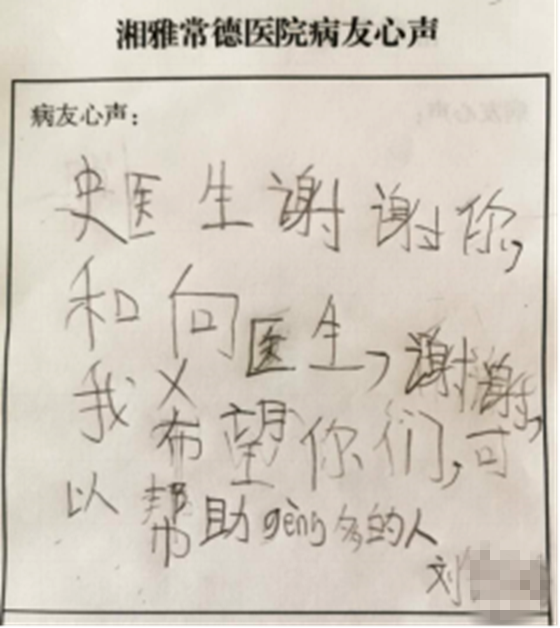 湘雅常德医院病友心声
病友心声：
史医生谢谢你，
和向医生，谢谢，
我希望你们，可
以帮助gèng多的人
刘